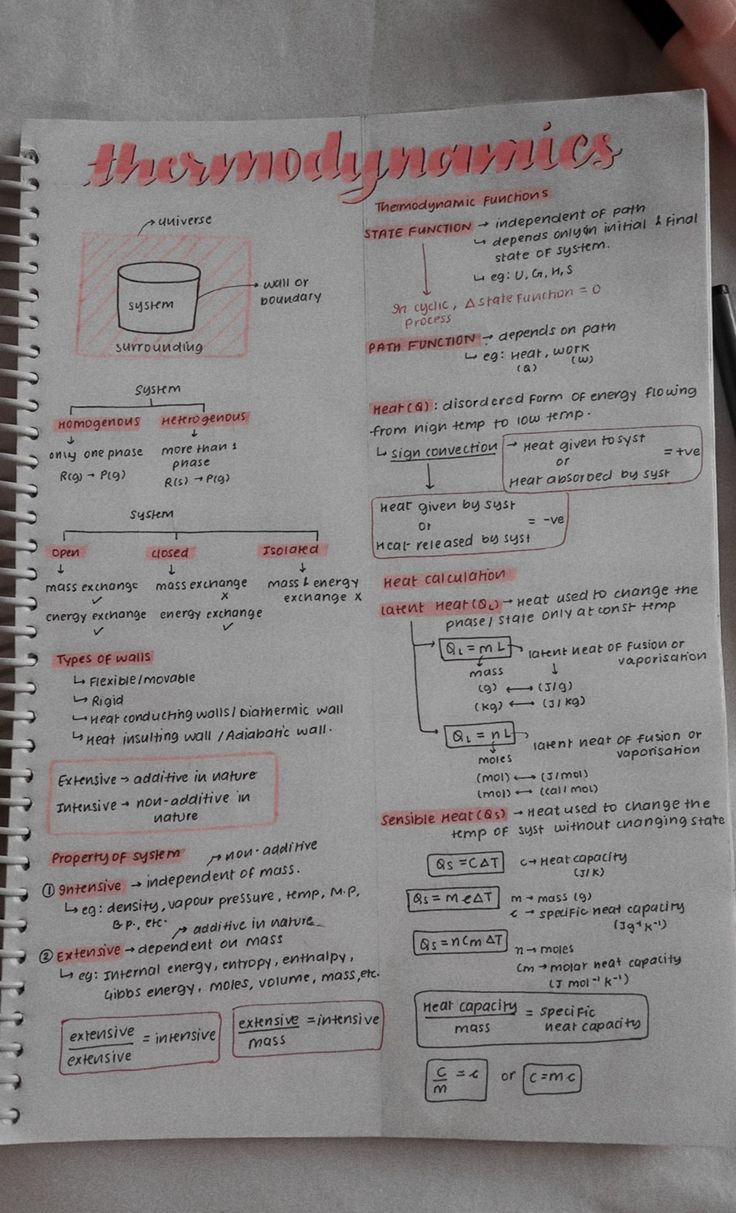 thermodynamics
universe
system
wall or
boundary
surrounding
System
Homogenous
Heterogenous
only one phase
R(g) → P(g)
more than 1
phase
R(s) → P(g)
System
Open
closed
Isolated
mass exchange
✓
energy exchange
✓
mass exchange
x
energy exchange
✓
mass & energy
exchange x
Types of walls
↳ Flexible/movable
↳ Rigid
↳ Heat conducting walls / Diathermic wall
↳ Heat insulting wall / Adiabatic wall.
Extensive → additive in nature
Intensive → non-additive in
nature
Property of system
→ non-additive
① Intensive → independent of mass.
↳ eg: density, vapour pressure, temp, M.P,
B.P., etc.
→ additive in nature
② Extensive → dependent on mass
↳ eg: Internal energy, entropy, enthalpy,
Gibbs energy, moles, volume, mass, etc.
extensive
extensive
= intensive
extensive
mass
= intensive
Thermodynamic Functions
STATE FUNCTION → independent of path
↳ depends only on initial & final
state of system.
↳ eg: U, G, H, S
In cyclic, Δ state function = 0
process
PATH FUNCTION : → depends on path
↳ eg: Heat, work
(Q) (W)
Heat (Q) : disordered form of energy flowing
from high temp to low temp.
↳ sign convection
→ Heat given to syst
or
Heat absorbed by syst
= +ve
Heat given by syst
or
Heat released by syst
= -ve
Heat calculation
latent Heat (QL) → Heat used to change the
phase / state only at const temp
QL = mL
latent heat of fusion or
vaporisation
mass
(g) ⟷ (J/g)
(kg) ⟷ (J/kg)
QL = nL
latent heat of fusion or
vaporisation
moles
(mol) ⟷ (J/mol)
(mol) ⟷ (cal/mol)
Sensible Heat (Qs) → Heat used to change the
temp of syst without changing state
Qs = CΔT
c → Heat capacity
(J/K)
Qs = mcΔT
m → mass (g)
c → specific heat capacity
(Jg⁻¹K⁻¹)
Qs = nCmΔT
n → moles
Cm → molar heat capacity
(J mol⁻¹ K⁻¹)
Heat capacity
mass
= specific
heat capacity
C
m
= c
or
C = mc